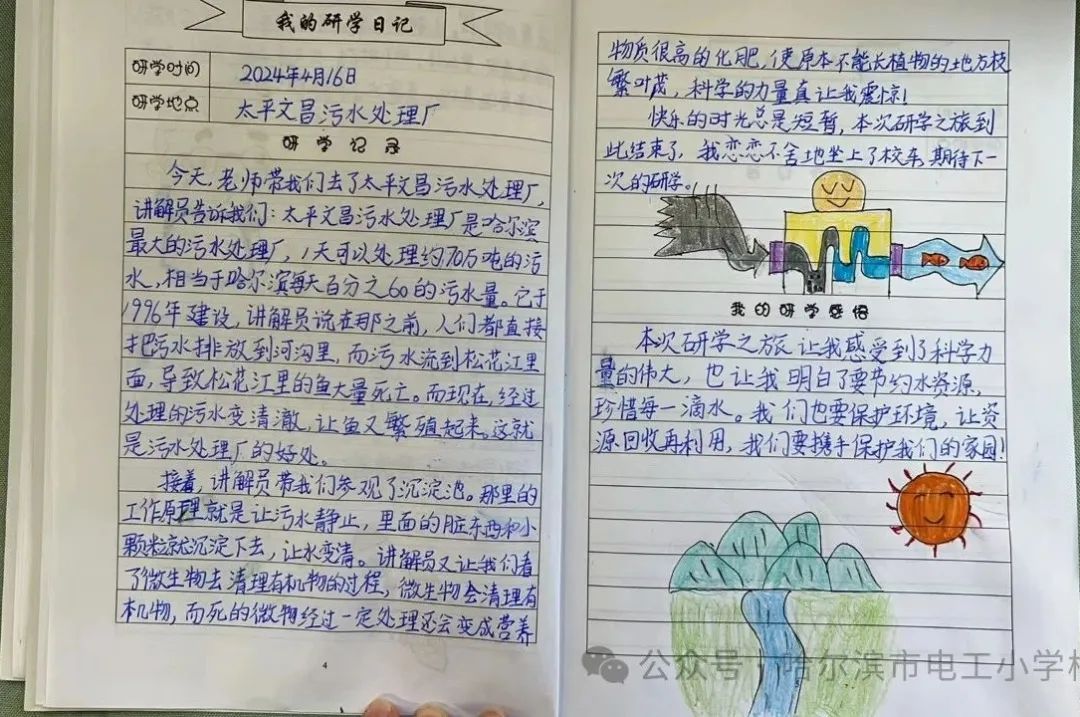 我的研学日记
研学时间
2024年4月16日
研学地点
太平文昌污水处理厂
研学记录
今天,老师带我们去了太平文昌污水处理厂,
讲解员告诉我们:太平文昌污水处理厂是哈尔滨
最大的污水处理厂,1天可以处理约70万吨的污
水,相当于哈尔滨每天百分之60的污水量。它于
1996年建设,讲解员说在那之前,人们都直接
把污水排放到河沟里,而污水流到松花江里
面,导致松花江里的鱼大量死亡。而现在,经过
处理的污水变清澈,让鱼又繁殖起来。这就
是污水处理厂的好处。
接着,讲解员带我们参观了沉淀池。那里的
工作原理就是让污水静止,里面的脏东西和小
颗粒就沉淀下去,让水变清。讲解员又让我们看
了微生物去清理有机物的过程,微生物会清理有
机物,而死的微物经过一定处理还会变成营养
4
物质很高的化肥,使原本不能长植物的地方枝
繁叶茂,科学的力量真让我震惊!
快乐的时光总是短暂,本次研学之旅到
此结束了,我恋恋不舍地坐上了校车,期待下一
次的研学。
我的研学感悟
本次研学之旅让我感受到了科学力
量的伟大,也让我明白了要节约水资源,
珍惜每一滴水。我们也要保护环境,让资
源回收再利用,我们要携手保护我们的家园!
公众号·哈尔滨市电工小学校